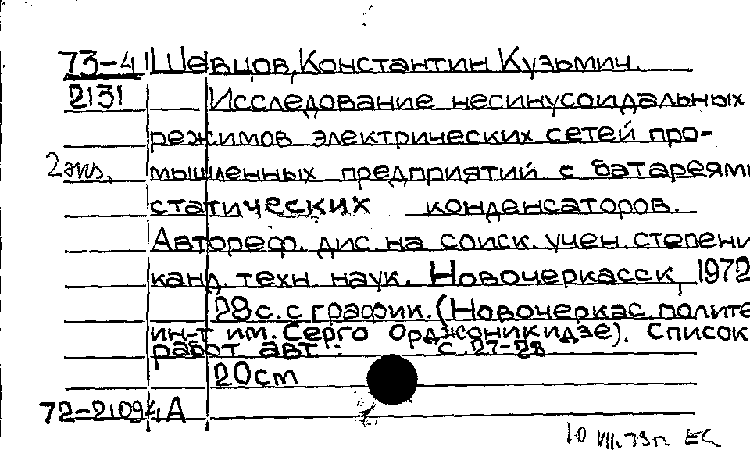 73-4 Шевцов, Константин Кузьмич.
2131 Исследование несинусоидальных
режимов электрических сетей про-
2 экз. мышленных предприятий с батареями
статических конденсаторов.
Автореф. дис. на соиск. учен. степени
канд. техн. наук. Новочеркасск, 1972
28 с. с график. (Новочеркас. политех
ин-т им. Серго Орджоникидзе). Список
работ авт.: с. 27-28
20 см
72-21094 А
10 VII.73 г. ЕС